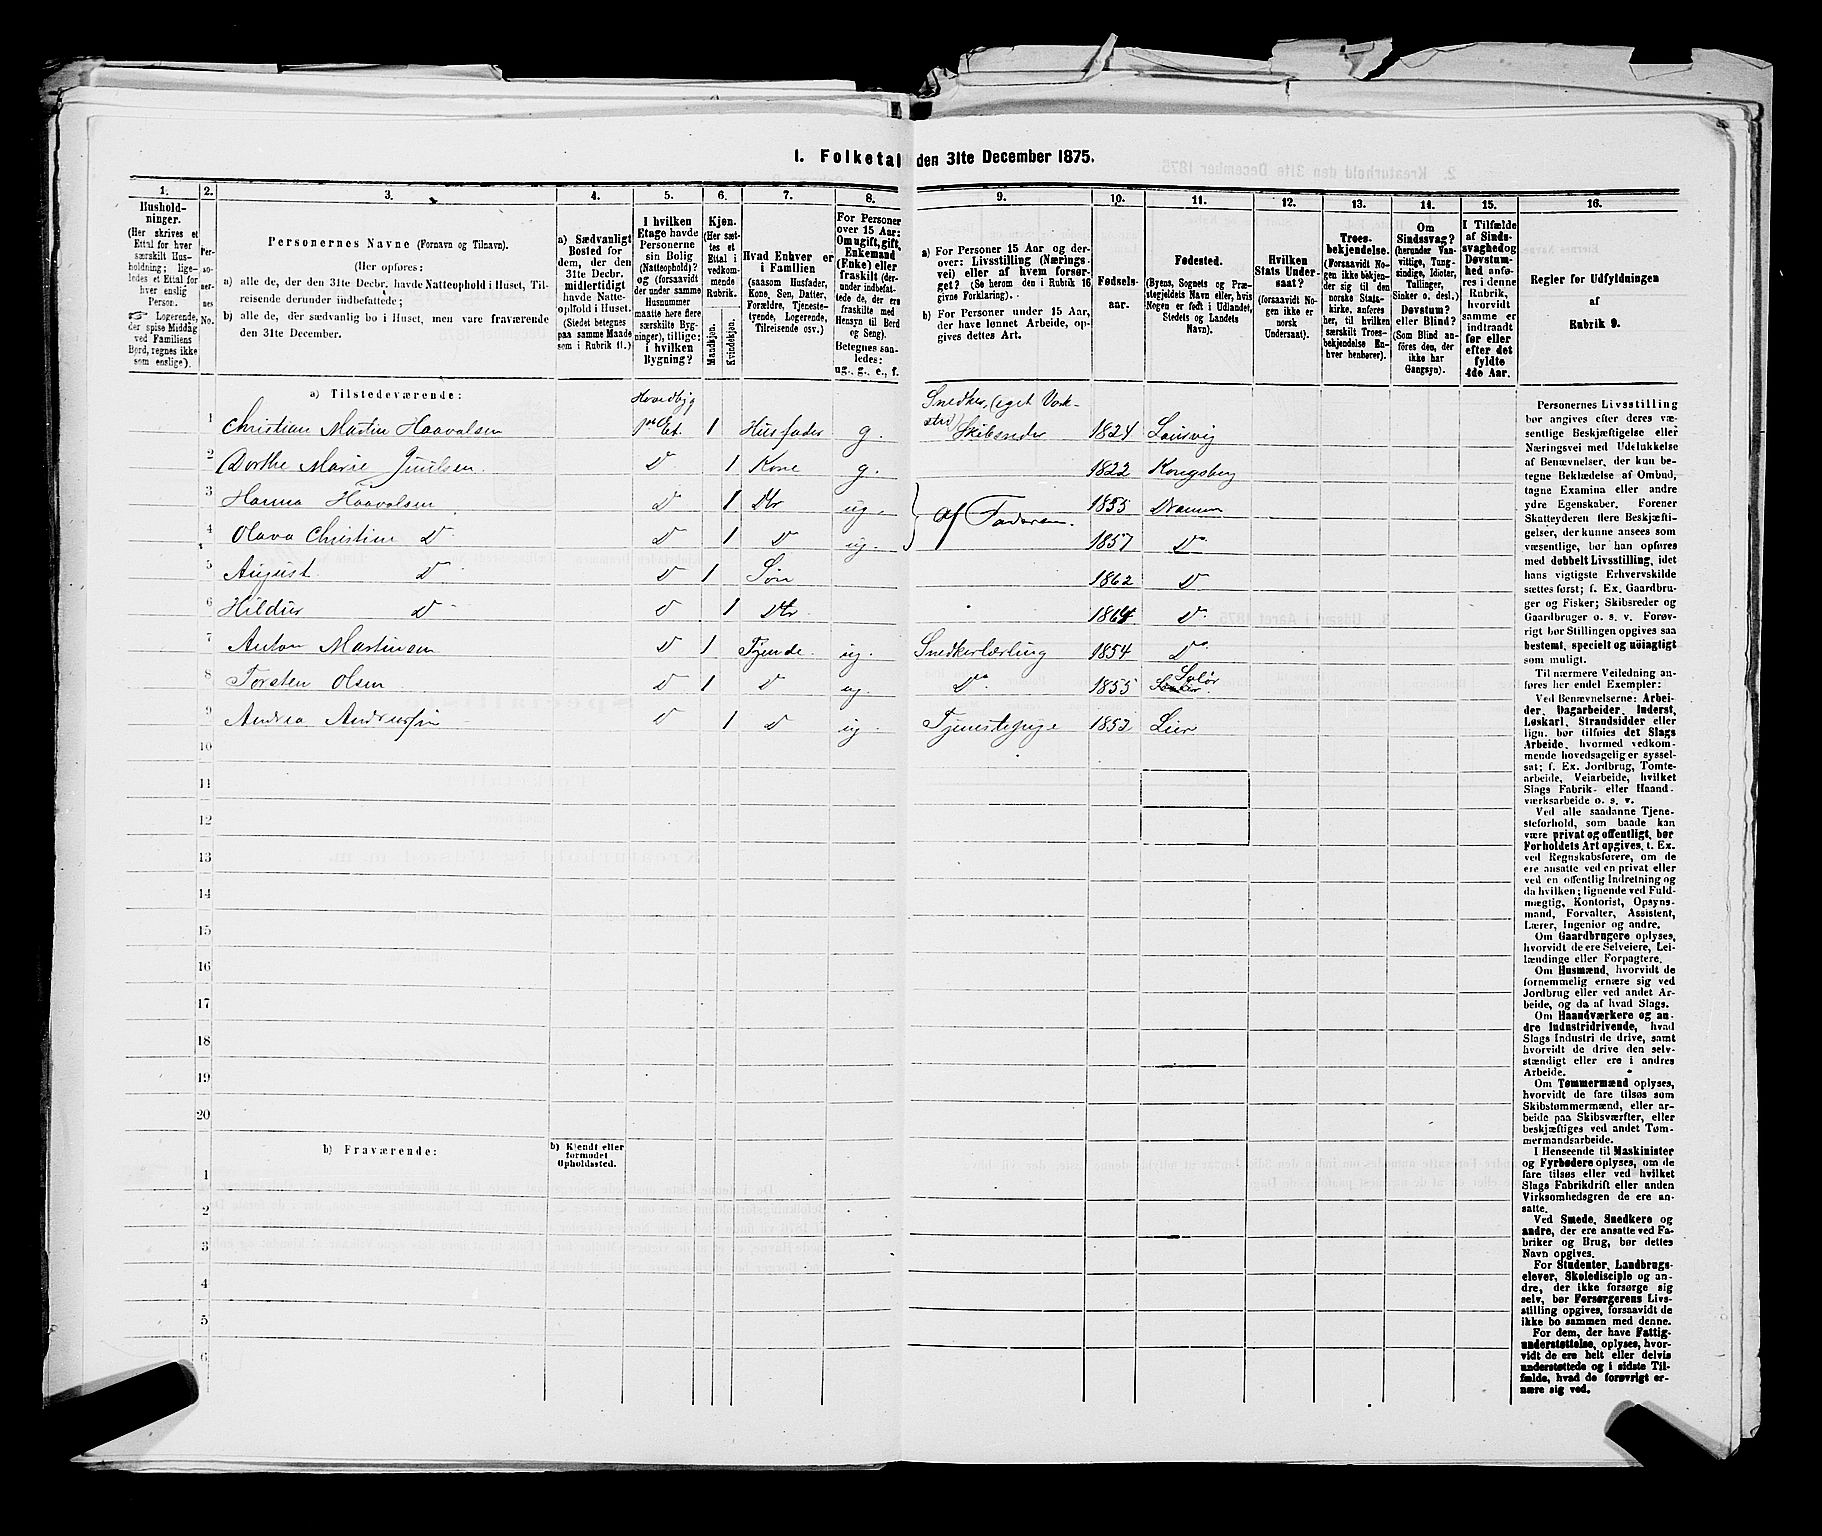 1. Folketal den 31te December 1875.
1.
Hushold-
ninger.
(Her skrives et
Ettal for hver
særskilt Hus-
holdning; lige-
ledes et Ettal for
hver enslig
Person.
☞ Logerende,
der spise Middag
ved Familiens
Bord, regnes ikke
som enslige).
2.
Per-
so-
ner-
nes
No.
3.
Personernes Navne (Fornavn og Tilnavn).
(Her opføres:
a) alle de, der den 31te Decbr. havde Natteophold i Huset, Til-
reisende derunder indbefattede;
b) alle de, der sædvanlig bo i Huset, men vare fraværende
den 31te December.
4.
a) Sædvanligt
Bosted for
dem, der den
31te Decbr.
midlertidigt
havde Natte-
ophold i Huset.
(Stedet betegnes
paa samme Maade
som i Rubrik 11.)
5.
I hvilken
Etage havde
Personerne
sin Bolig
(Natteophold)?
og (forsaavidt
der under samme
Husnummer
maatte høre flere
særskilte Byg-
ninger), tillige:
i hvilken
Bygning?
6.
Kjøn.
(Her sæt-
tes et
Ettal i
vedkom-
mende
Rubrik.
Mandkjøn.
Kvindekjøn.
7.
Hvad Enhver er
i Familien
(saasom Husfader,
Kone, Søn, Datter,
Forældre, Tjeneste-
tyende, Logerende,
Tilreisende osv.)
8.
For Personer
over 15 Aar:
Om ugift, gift,
Enkemand
(Enke) eller
fraskilt (der-
under indbefat-
tede de, der ere
fraskilte med
Hensyn til Bord
og Seng).
Betegnes saa-
ledes:
ug., g., e., f.
9.
a) For Personer 15 Aar og der-
over: Livsstilling (Nærings-
vei) eller af hvem forsør-
get? (Se herom den i Rubrik 16
givne Forklaring).
b) For Personer under 15 Aar,
der have lønnet Arbeide, op-
gives dettes Art.
10.
Fødsels-
aar.
11.
Fødested.
(Byens, Sognets og Præ-
stegjeldets Navn eller, hvis
Nogen er født i Udlandet,
Stedets og Landets
Navn).
12.
Hvilken
Stats Under-
saat?
(forsaavidt No-
gen ikke er
norsk
Undersaat).
13.
Troes-
bekjendelse.
(Forsaavidt No-
gen ikke bekjen-
der sig til den
norske Stats-
kirke, anføres
her, til hvilken
særskilt Troes-
bekjendelse En-
hver henhører).
14.
Om
Sindssvag?
(herunder Van-
vittige, Tung-
sindige, Idioter,
Tallinger,
Sinker o. desl.)
Døvstum?
eller Blind?
(Som Blind an-
føres den, der
ikke har
Gangsyn).
15.
I Tilfælde
af Sinds-
svaghed og
Døvstum-
hed anfø-
res i denne
Rubrik,
hvorvidt
samme er
indtraadt
før eller
efter det
fyldte
4de Aar.
16.
Regler for Udfyldningen
af
Rubrik 9.
a) Tilstedeværende:
Hovedbyg
1 Christian Martin Haavalsen 1ste Et. 1 Husfader g. Snedker, (eget Værk-
sted) Skibsreder 1824 Laurvig
2 Dorthe Marie Juulsen. D 1 Kone g. 1822 Kongsberg
3 Hanna Haavalsen D 1 Dtr ug. } af Faderen. 1855 Drammen
4 Olava Christine D D 1 D ug. 1857 Do
5 August D D 1 Søn 1862 D
6 Hildur D D 1 Dtr 1864 D.
7 Anton Martinsen D 1 Tyende. ug. Snedkerlærling 1854 Do
8 Torsten Olsen D 1 D ug. Do. 1855 Solør
9 Andrea Andersen D 1 D ug. Tjenestepige 1853 Lier
10
11
12
13
14
15
16
17
18
19
20
b) Fraværende:
b) Kjendt eller
formodet
Opholdssted.
1
2
3
4
5
6
Personernes Livsstilling
bør angives efter deres væ-
sentlige Beskjæftigelse eller
Næringsvei med Udelukkelse
af Benævnelser, der kun be-
tegne Beklædelse af Ombud,
tagne Examina eller andre
ydre Egenskaber. Forener
Skatteyderen flere Beskjæfti-
gelser, der kunne ansees som
væsentlige, bør han opføres
med dobbelt Livsstilling, idet
hans vigtigste Erhvervskilde
sættes først; f. Ex. Gaardbru-
ger og Fisker; Skibsreder og
Gaardbruger o. s. v. Forøv-
rigt bør Stillingen opgives saa
bestemt, specielt og nøiagtigt
som muligt.
Til nærmere Veiledning an-
føres her endel Exempler:
Ved Benævnelserne: Arbei-
der, Dagarbeider, Inderst,
Løskarl, Strandsidder eller
lign. bør tilføies det Slags
Arbeide, hvormed vedkom-
mende hovedsagelig er syssel-
sat; f. Ex. Jordbrug, Tomte-
arbeide, Veiarbeide, hvilket
Slags Fabrik- eller Haand-
værksarbeide o. s. v.
Ved alle saadanne Tjene-
steforhold, som baade kan
være privat og offentligt, bør
Forholdets Art opgives, t. Ex.
ved Regnskabsførere, om de
ere ansatte ved en privat eller
ved en offentlig Indretning og
da hvilken; lignende ved Fuld-
mægtig, Kontorist, Opsyns-
mand, Forvalter, Assistent,
Lærer, Ingeniør og andre.
Om Gaardbrugere oplyses,
hvorvidt de ere Selveiere, Lei-
lændinge eller Forpagtere.
Om Husmænd, hvorvidt de
fornemmelig ernære sig ved
Jordbrug eller ved andet Ar-
beide, og da af hvad Slags.
Om Haandværkere og an-
dre Industridrivende, hvad
Slags Industri de drive, samt
hvorvidt de drive den selv-
stændigt eller ere i andres
Arbeide.
Om Tømmermænd oplyses,
hvorvidt de fare tilsøs som
Skibstømmermænd, eller ar-
beide paa Skibsværfter, eller
beskjæftiges ved andet Tøm-
mermandsarbeide.
I Henseende til Maskinister
og Fyrbødere oplyses, om de
fare tilsøs eller ved hvilket
Slags Fabrikdrift eller anden
Virksomhedsgren de ere an-
satte.
Ved Smede, Snedkere og
andre, der ere ansatte ved Fa-
briker og Brug, bør dettes
Navn opgives.
For Studenter, Landbrugs-
elever, Skoledisciple og an-
dre, der ikke forsørge sig
selv, bør Forsørgerens Livs-
stilling opgives, forsaavidt de
ikke bo sammen med denne.
For dem, der have Fattig-
understøttelse, oplyses, hvor-
vidt de ere helt eller delvis
understøttede og i sidste Til-
fælde, hvad de forøvrigt er-
nære sig ved.